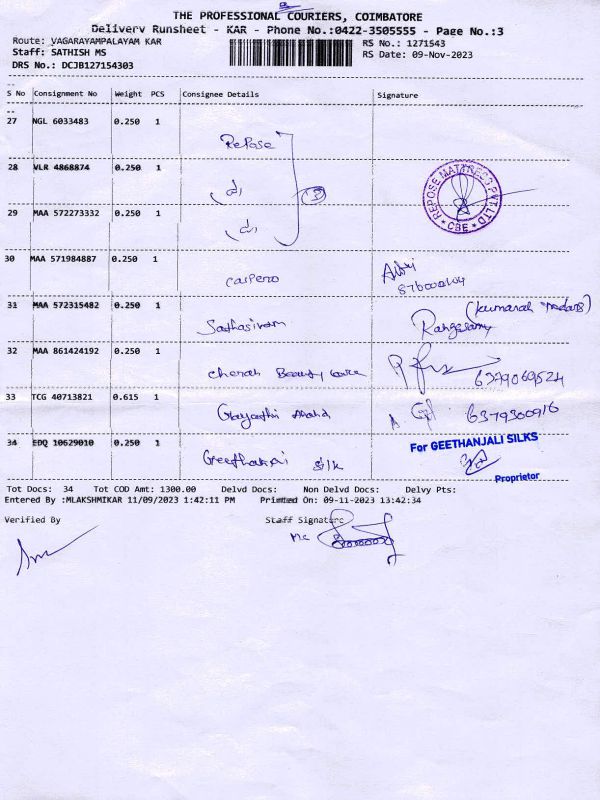 THE PROFESSIONAL COURIERS, COIMBATORE
Delivery Runsheet - KAR - Phone No.:0422-3505555 - Page No.:3
Route: VAGARAYAMPALAYAM KAR RS No.: 1271543
Staff: SATHISH MS RS Date: 09-Nov-2023
DRS No.: DCJB127154303
S No Consignment No Weight PCS Consignee Details Signature
27 NGL 6033483 0.250 1
Repose
28 VLR 4868874 0.250 1
REPOSE MATTRESS PVT LTD
* CBE *
29 MAA 572273332 0.250 1
30 MAA 571984887 0.250 1
31 MAA 572315482 0.250 1
Sathasivam Rangasamy
32 MAA 861424192 0.250 1
Cherah Beauty care 6379069524
33 TCG 40713821 0.615 1
Gayathri 6379300916
34 EDQ 10629010 0.250 1
For GEETHANJALI SILKS
silk
Proprietor
Tot Docs: 34 Tot COD Amt: 1300.00 Delvd Docs: Non Delvd Docs: Delvy Pts:
Entered By :MLAKSHMIKAR 11/09/2023 1:42:11 PM Printed On: 09-11-2023 13:42:34
Verified By Staff Signature